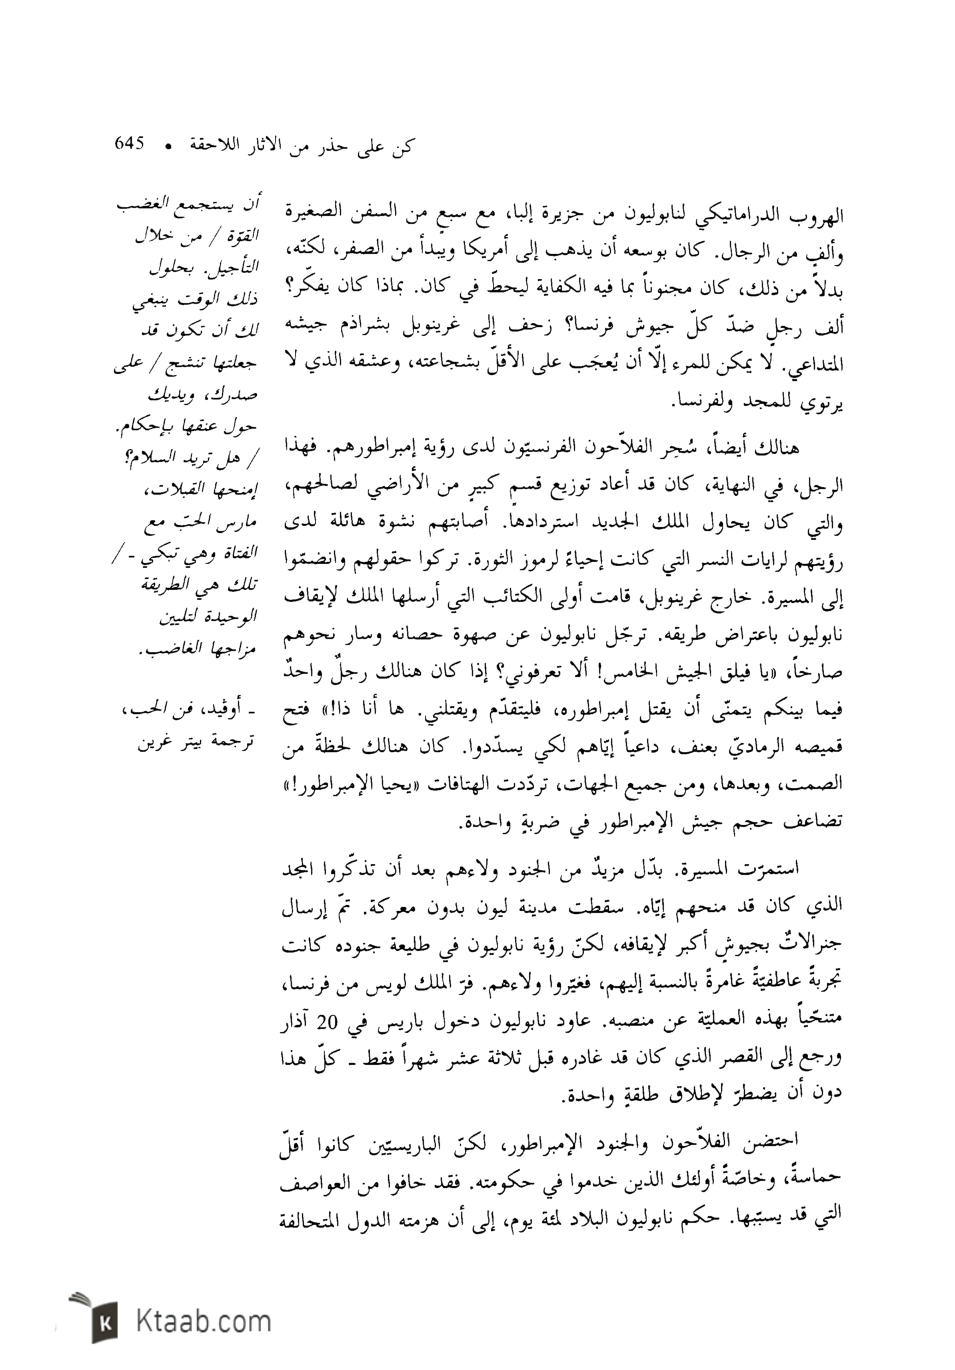 كن على حذر من الاثار اللاحقة • 645
الهروب الدراماتيكي لنابوليون من جزيرة إلبا، مع سبعٍ من السفن الصغيرة
وألفٍ من الرجال. كان بوسعه أن يذهب إلى أمريكا ويبدأ من الصفر، لكنّه،
بدلاً من ذلك، كان مجنوناً بما فيه الكفاية ليحطّ في كان. بماذا كان يفكّر؟
ألف رجلٍ ضدّ كلّ جيوش فرنسا؟ زحف إلى غرينوبل بشراذم جيشه
المتداعي. لا يمكن للمرء إلّا أن يُعجَب على الأقلّ بشجاعته، وعشقه الذي لا
يرتوي للمجد ولفرنسا.
هنالك أيضاً، سُحِر الفلاّحون الفرنسيّون لدى رؤية إمبراطورهم. فهذا
الرجل، في النهاية، كان قد أعاد توزيع قسمٍ كبيرٍ من الأراضي لصالحهم،
والتي كان يحاول الملك الجديد استردادها. أصابتهم نشوة هائلة لدى
رؤيتهم لرايات النسر التي كانت إحياءً لرموز الثورة. تركوا حقولهم وانضمّوا
إلى المسيرة. خارج غرينوبل، قامت أولى الكتائب التي أرسلها الملك لإيقاف
نابوليون باعتراض طريقه. ترجّل نابوليون عن صهوة حصانه وسار نحوهم
صارخاً، «يا فيلق الجيش الخامس! ألا تعرفوني؟ إذا كان هنالك رجلٌ واحدٌ
فيما بينكم يتمنّى أن يقتل إمبراطوره، فليتقدّم ويقتلني. ها أنا ذا!» فتح
قميصه الرماديّ بعنف، داعياً إيّاهم لكي يسدّدوا. كان هنالك لحظةً من
الصمت، وبعدها، ومن جميع الجهات، تردّدت الهتافات «يحيا الإمبراطور!»
تضاعف حجم جيش الإمبراطور في ضربةٍ واحدة.
استمرّت المسيرة. بدّل مزيدٌ من الجنود ولاءهم بعد أن تذكّروا المجد
الذي كان قد منحهم إيّاه. سقطت مدينة ليون بدون معركة. تمّ إرسال
جنرالاتٌ بجيوشٍ أكبر لإيقافه، لكنّ رؤية نابوليون في طليعة جنوده كانت
تجربةً عاطفيّةً غامرةً بالنسبة إليهم، فغيّروا ولاءهم. فرّ الملك لويس من فرنسا،
متنحّياً بهذه العمليّة عن منصبه. عاود نابوليون دخول باريس في 20 آذار
ورجع إلى القصر الذي كان قد غادره قبل ثلاثة عشر شهراً فقط ـ كلّ هذا
دون أن يضطرّ لإطلاق طلقةٍ واحدة.
احتضن الفلاّحون والجنود الإمبراطور، لكنّ الباريسيّين كانوا أقلّ
حماسةً، وخاصّةً أولئك الذين خدموا في حكومته. فقد خافوا من العواصف
التي قد يسبّبها. حكم نابوليون البلاد لمئة يوم، إلى أن هزمته الدول المتحالفة
أن يستجمع الغضب
القوّة / من خلال
التأجيل. بحلول
ذلك الوقت ينبغي
لك أن تكون قد
جعلتها تنشج / على
صدرك، ويديك
حول عنقها بإحكام.
/ هل تريد السلام؟
إمنحها القبلات،
مارس الحبّ مع
الفتاة وهي تبكي ـ /
تلك هي الطريقة
الوحيدة لتليين
مزاجها الغاضب.
ـ أوڤيد، فن الحب،
ترجمة بيتر غرين
Ktaab.com